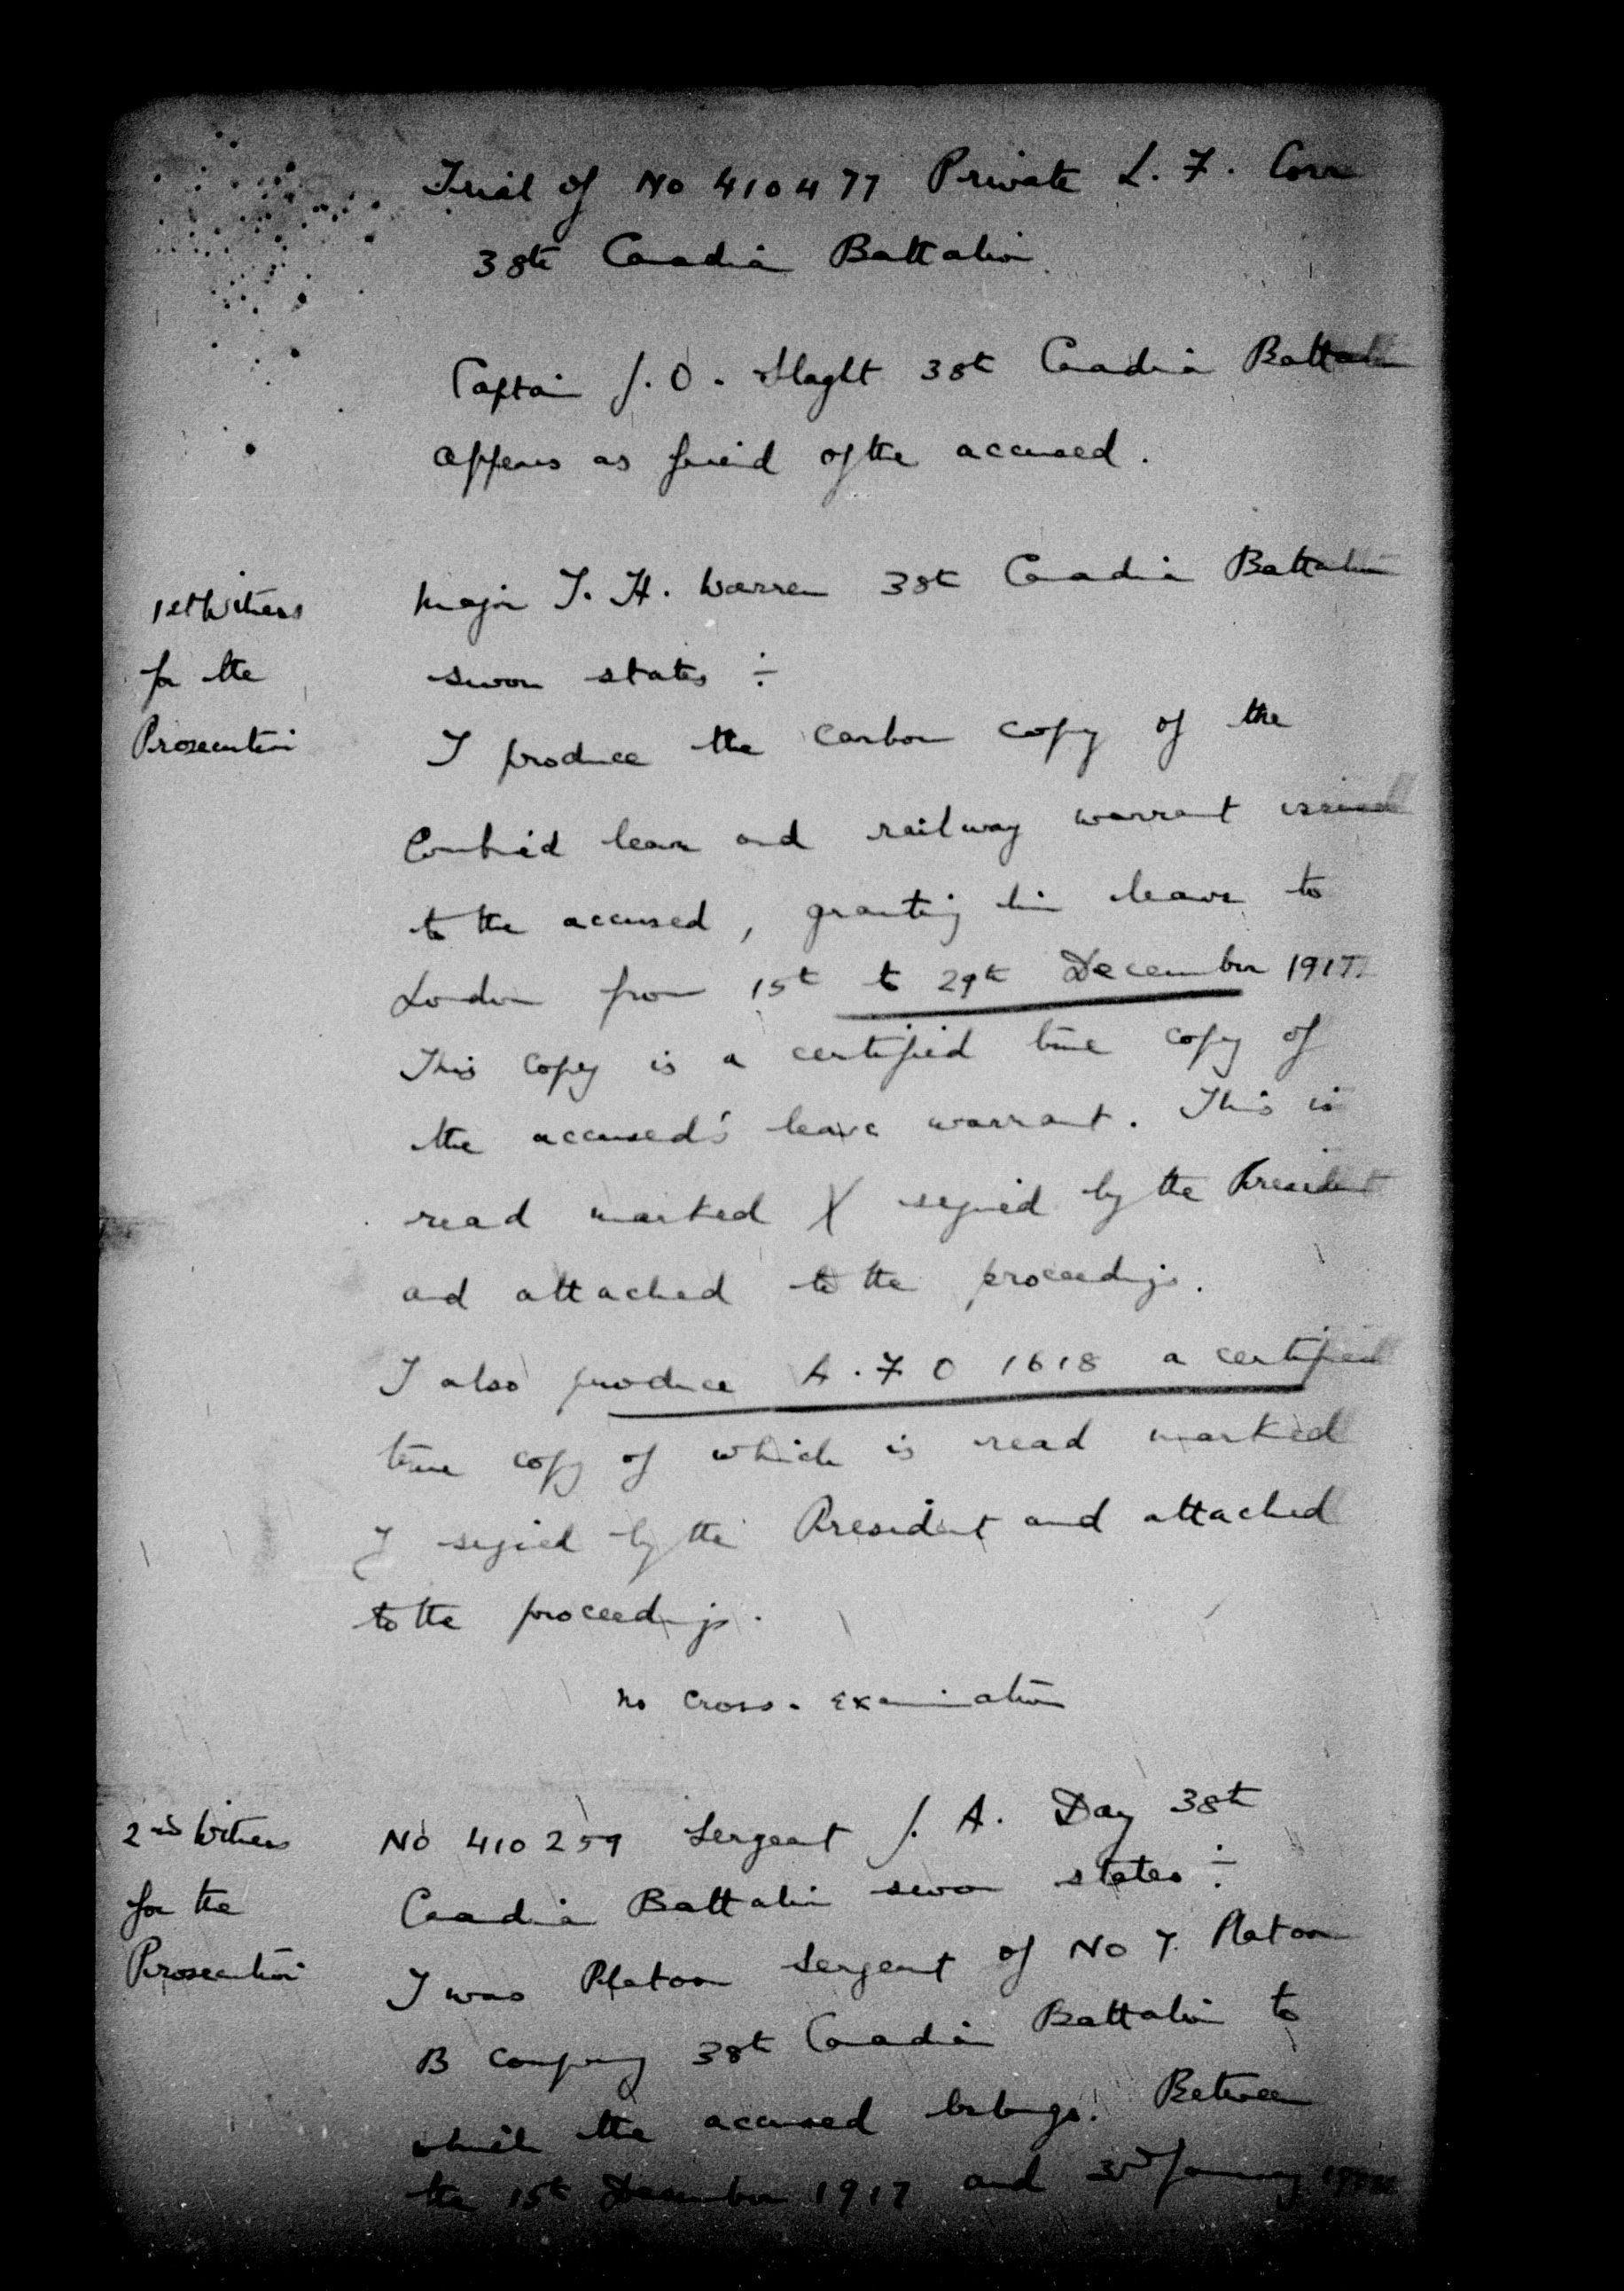 Trial of No 410477 Private L. F. Corr
38th Canadian Battalion
Captain J. O. Slaght 38th Canadian Battalion
appears as friend of the accused.
1st Witness
for the
Prosecution
Major T. H. Warren 38th Canadian Battalion
sworn states ÷
I produce the carbon copy of the
Combined leave and railway warrant issued
to the accused, granting him leave to
London from 15th to 29th December 1917
This copy is a certified true copy of
the accused's leave warrant. This is
read marked X signed by the President
and attached to the proceedings.
I also produce A.F O 1618 a certified
true copy of which is read marked
Y signed by the President and attached
to the proceedings.
No cross-examination
2nd Witness
for the
Prosecution
No 410259 Sergeant J. A. Day 38th
Canadian Battalion sworn states ÷
I was Platoon Sergeant of No 7. Platoon
B Company 38th Canadian Battalion to
which the accused belongs. Between
the 15th December 1917 and 3rd January